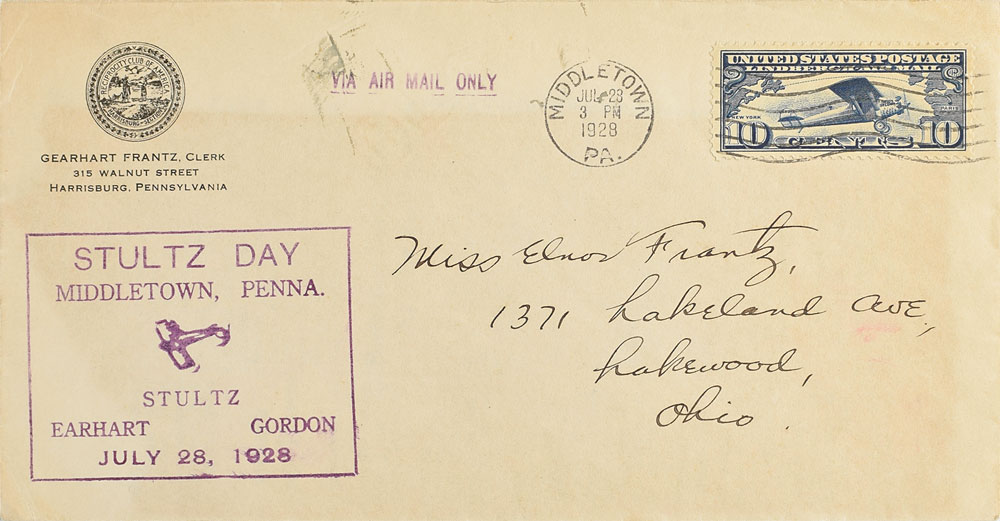 RECIPROCITY CLUB OF AMERICA
HARRISBURG-SECTION
GEARHART FRANTZ, CLERK
315 WALNUT STREET
HARRISBURG, PENNSYLVANIA
VIA AIR MAIL ONLY
MIDDLETOWN
JUL 28
3 PM
1928
PA.
UNITED STATES POSTAGE
LINDBERGH AIR MAIL
NEW YORK
PARIS
10
10
STULTZ DAY
MIDDLETOWN, PENNA.
STULTZ
EARHART GORDON
JULY 28, 1928
Miss Elnor Frantz,
1371 Lakeland Ave,
Lakewood,
Ohio.